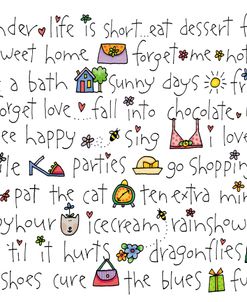 nder life is short...eat dessert f
sweet home forget me no
a bath sunny days f
forget love fall into chocolate.
ee happy sing i lov
ile parties go shoppin
pat the cat ten extra min
pyhour icecream rainshow
'til it hurts dragonflies
shoes cure the blues f